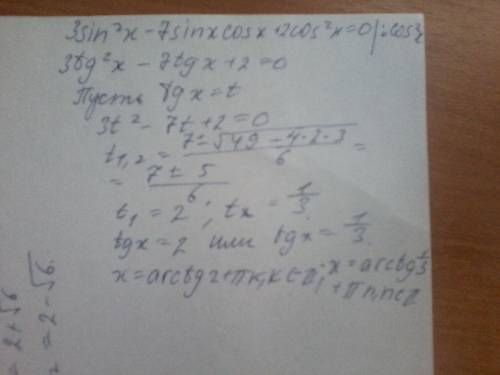 3sin²x - 7sinx cosx + 2cos²x = 0 |:cos²x
3tg²x - 7tgx + 2 = 0
Пусть tgx = t
3t² - 7t + 2 = 0
t₁,₂ = (7 ± √(49 - 4·2·3))/6 =
= (7 ± 5)/6
t₁ = 2 ; tx = 1/3
tgx = 2 или tgx = 1/3
x = arctg2 + πk, k ∈ Z; x = arctg 1/3
+ πn, n ∈ Z
= 2 + √6
= 2 - √6